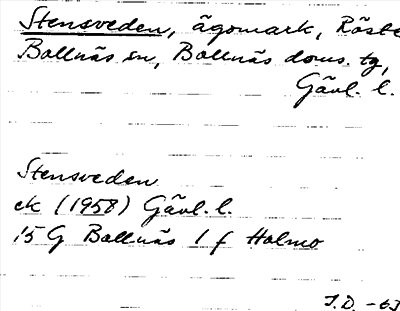 Stensveden, ägomark, Röste
Bollnäs sn, Bollnäs doms. tg,
Gävl. l.
Stensveden
ek (1958) Gävl. l.
15 G Bollnäs 1 f Holmo
J.D. -63